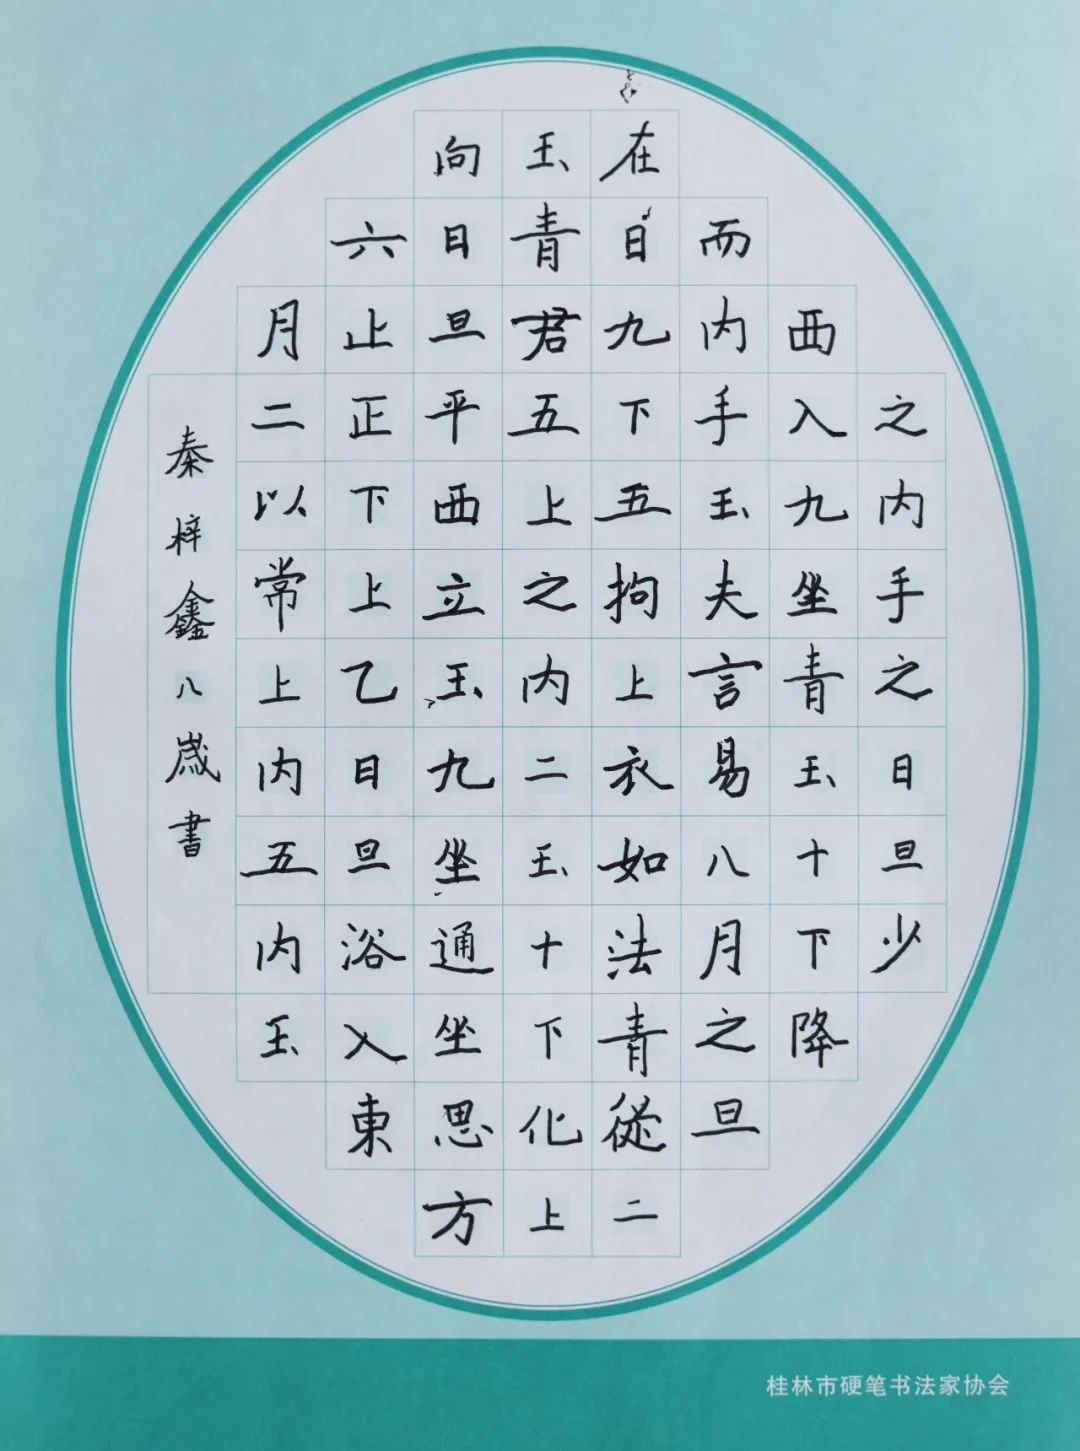 之内手之日旦少
西入九坐青玉十下降
而内手玉夫言易八月之旦
在日九下五拘上衣如法青從二
玉青君五上之内二玉十下化上
向日旦平西立玉九坐通坐思方
六止正下上乙日旦浴入東
月二以常上内五内玉
秦梓鑫八歲書
桂林市硬笔书法家协会